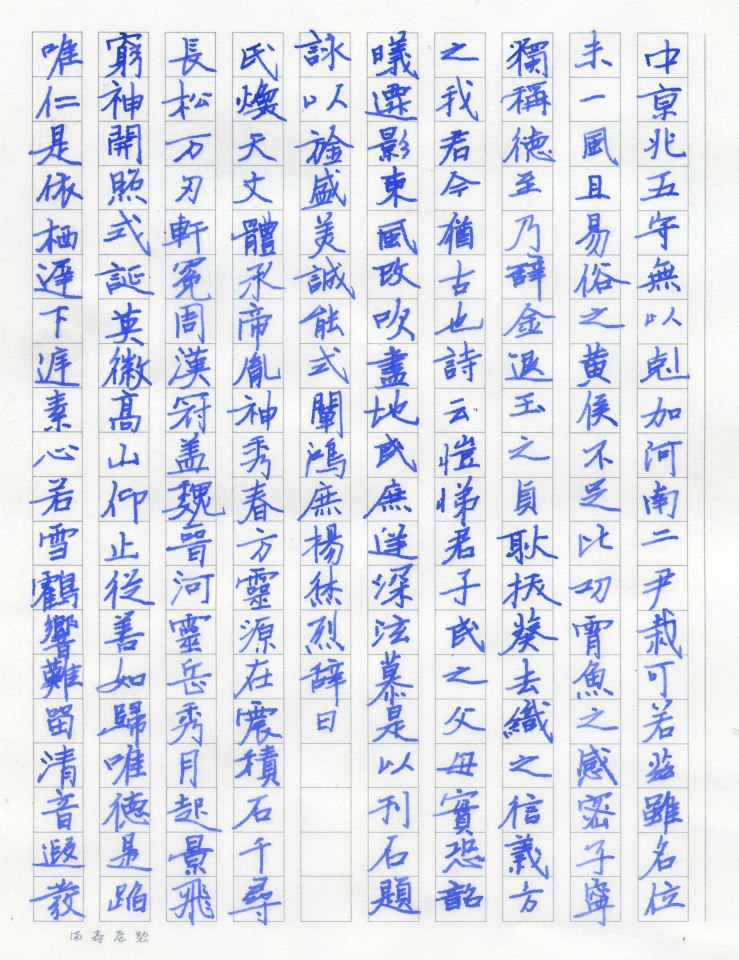 中京兆五守無以剋加河南二尹裁可若茲雖名位
未一風且易俗之黄侯不足比功霄魚之感密子寧
獨稱德至乃辭金退玉之貞耿拔葵去織之信義方
之我君今猶古也詩云愷悌君子民之父母實恐韶
曦遷影東風改吹盡地民庶逆深泫慕是以刊石題
詠以旌盛美誠能式闡鴻庶揚烋烈辞曰
氏煥天文體承帝胤神秀春方靈源在震積石千尋
長松万刃軒冕周漢冠盖魏晉河靈岳秀月起景飛
窮神開照式誕英徽高山仰止從善如歸唯德是蹈
唯仁是依栖遲下迋素心若雪鶴響難留清音遐發